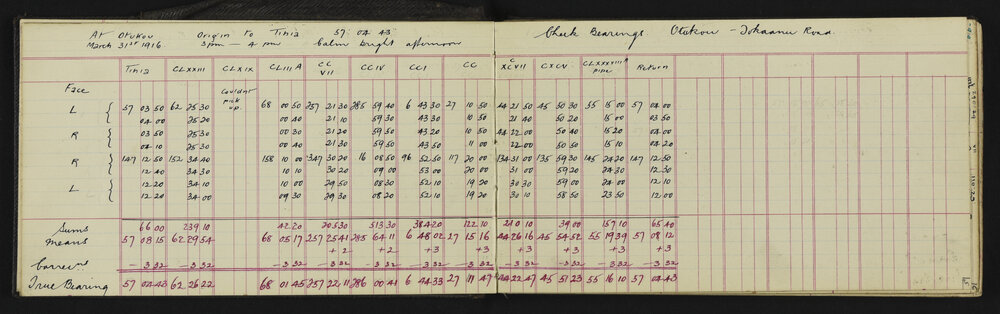 At Otukou Origin to Tinia 57 04 43 Check Bearings Otukou - Tokaanu Road.
March 31st 1916. 3pm - 4pm Calm bright afternoon
Tinia CLXXIII CLXIX CLIII A CC VII CCIV CCI CC C XCVII CXCV CLXXXVIII A pine Return
Face Couldn't pick up.
L 57 03 50 62 25 30 68 00 50 257 21 30 285 59 40 6 43 30 27 10 50 44 21 50 45 50 30 55 15 00 57 04 00
04 00 25 20 00 40 21 10 59 30 43 30 10 50 21 40 50 20 15 00 03 50
R 03 50 25 30 00 30 21 20 59 30 43 50 10 50 44 22 00 50 40 15 20 04 00
04 10 25 30 00 40 21 30 59 50 43 50 11 00 22 00 50 50 15 10 04 20
R 147 12 50 152 34 40 158 10 00 347 30 20 16 08 50 96 52 50 117 20 00 134 31 00 135 59 30 145 24 20 147 12 50
12 40 34 30 10 10 30 20 09 00 53 00 20 00 31 00 59 20 24 30 12 30
L 12 20 34 10 10 00 29 50 08 30 52 10 19 20 30 30 59 00 24 00 12 10
12 20 34 00 09 30 29 30 08 20 52 10 19 20 30 10 58 50 23 50 12 00
Sums 66 00 239 10 42 20 205 30 513 30 384 20 122 10 210 10 39 00 157 10 65 40
Means 57 08 15 62 29 54 68 05 17 257 25 41 285 64 11 6 48 02 27 15 16 44 26 16 45 54 52 55 19 39 57 08 12
+2 +2 +3 +3 +3 +3 +3 +3
Correcns - 3 32 - 3 32 - 3 32 - 3 32 - 3 32 - 3 32 - 3 32 - 3 32 - 3 32 - 3 32 - 3 32
True Bearing 57 04 43 62 26 22 68 01 45 257 22 11 286 00 41 6 44 33 27 11 47 44 22 47 45 51 23 55 16 10 57 04 43